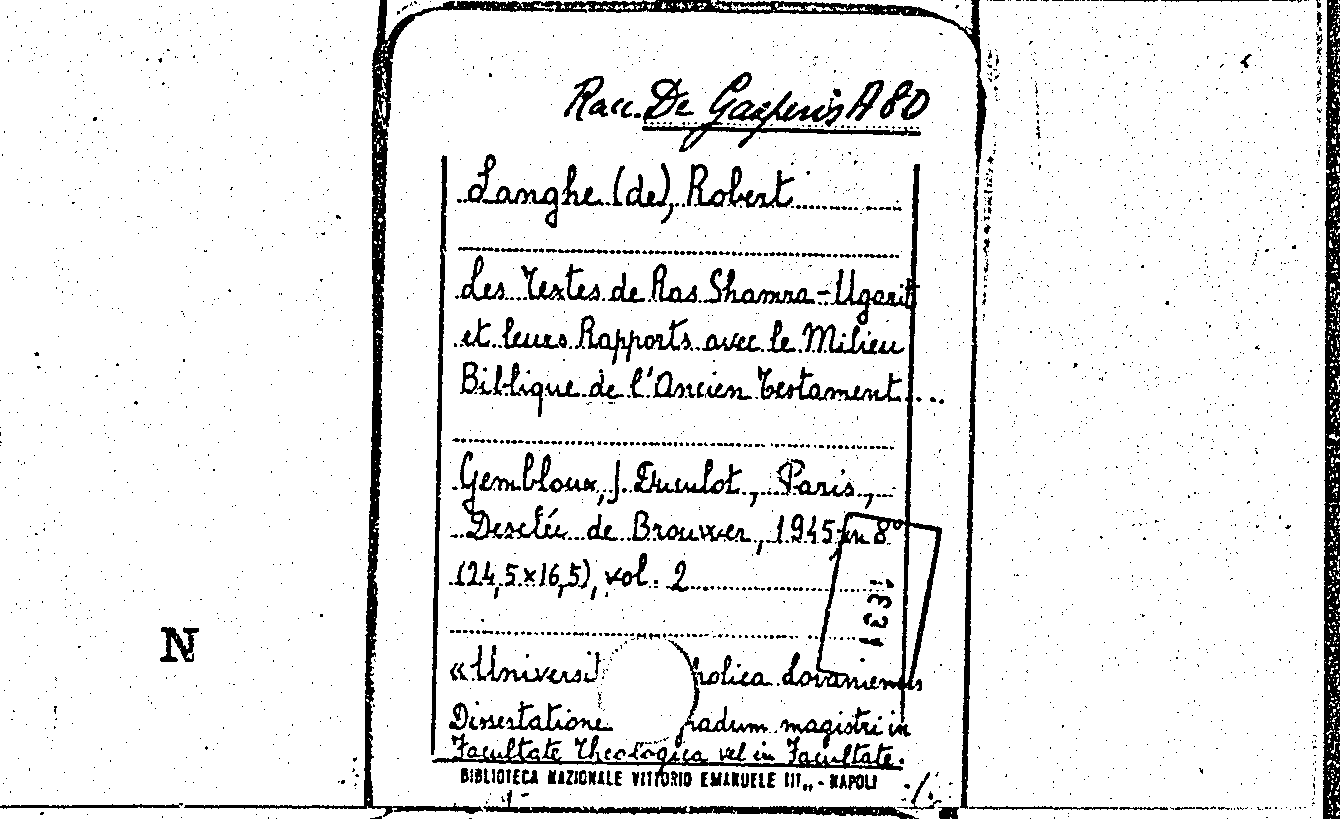 Racc. De Gasperis A 80
Langhe (de), Robert
Les Textes de Ras Shamra-Ugarit
et leurs Rapports avec le Milieu
Biblique de l'Ancien Testament....
Gembloux, J. Duculot, Paris,
Desclée de Brouwer, 1945, in 8°
(24,5x16,5), vol. 2
«Universi holica Lovaniensis
Dissertatione radum magistri in
Facultate Theologica vel in Facultate.
BIBLIOTECA NAZIONALE VITTORIO EMANUELE III,, - NAPOLI
N